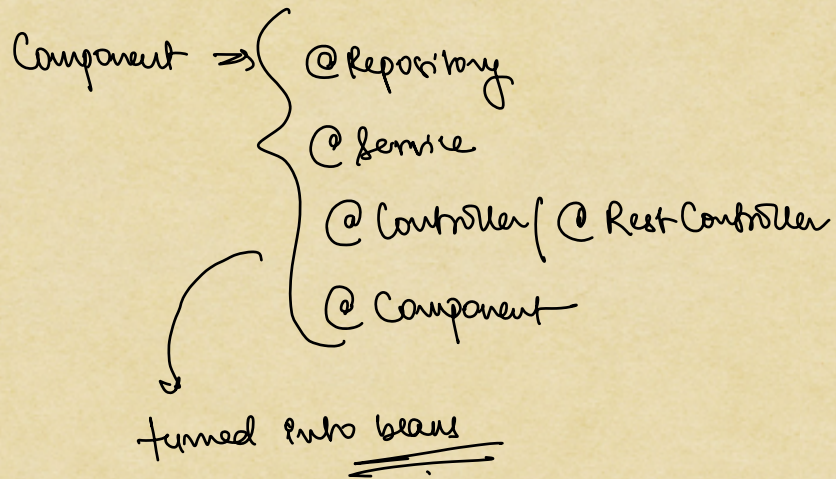 Component ⇒ { @Repository
@Service
@Controller / @RestController
@Component
turned into beans